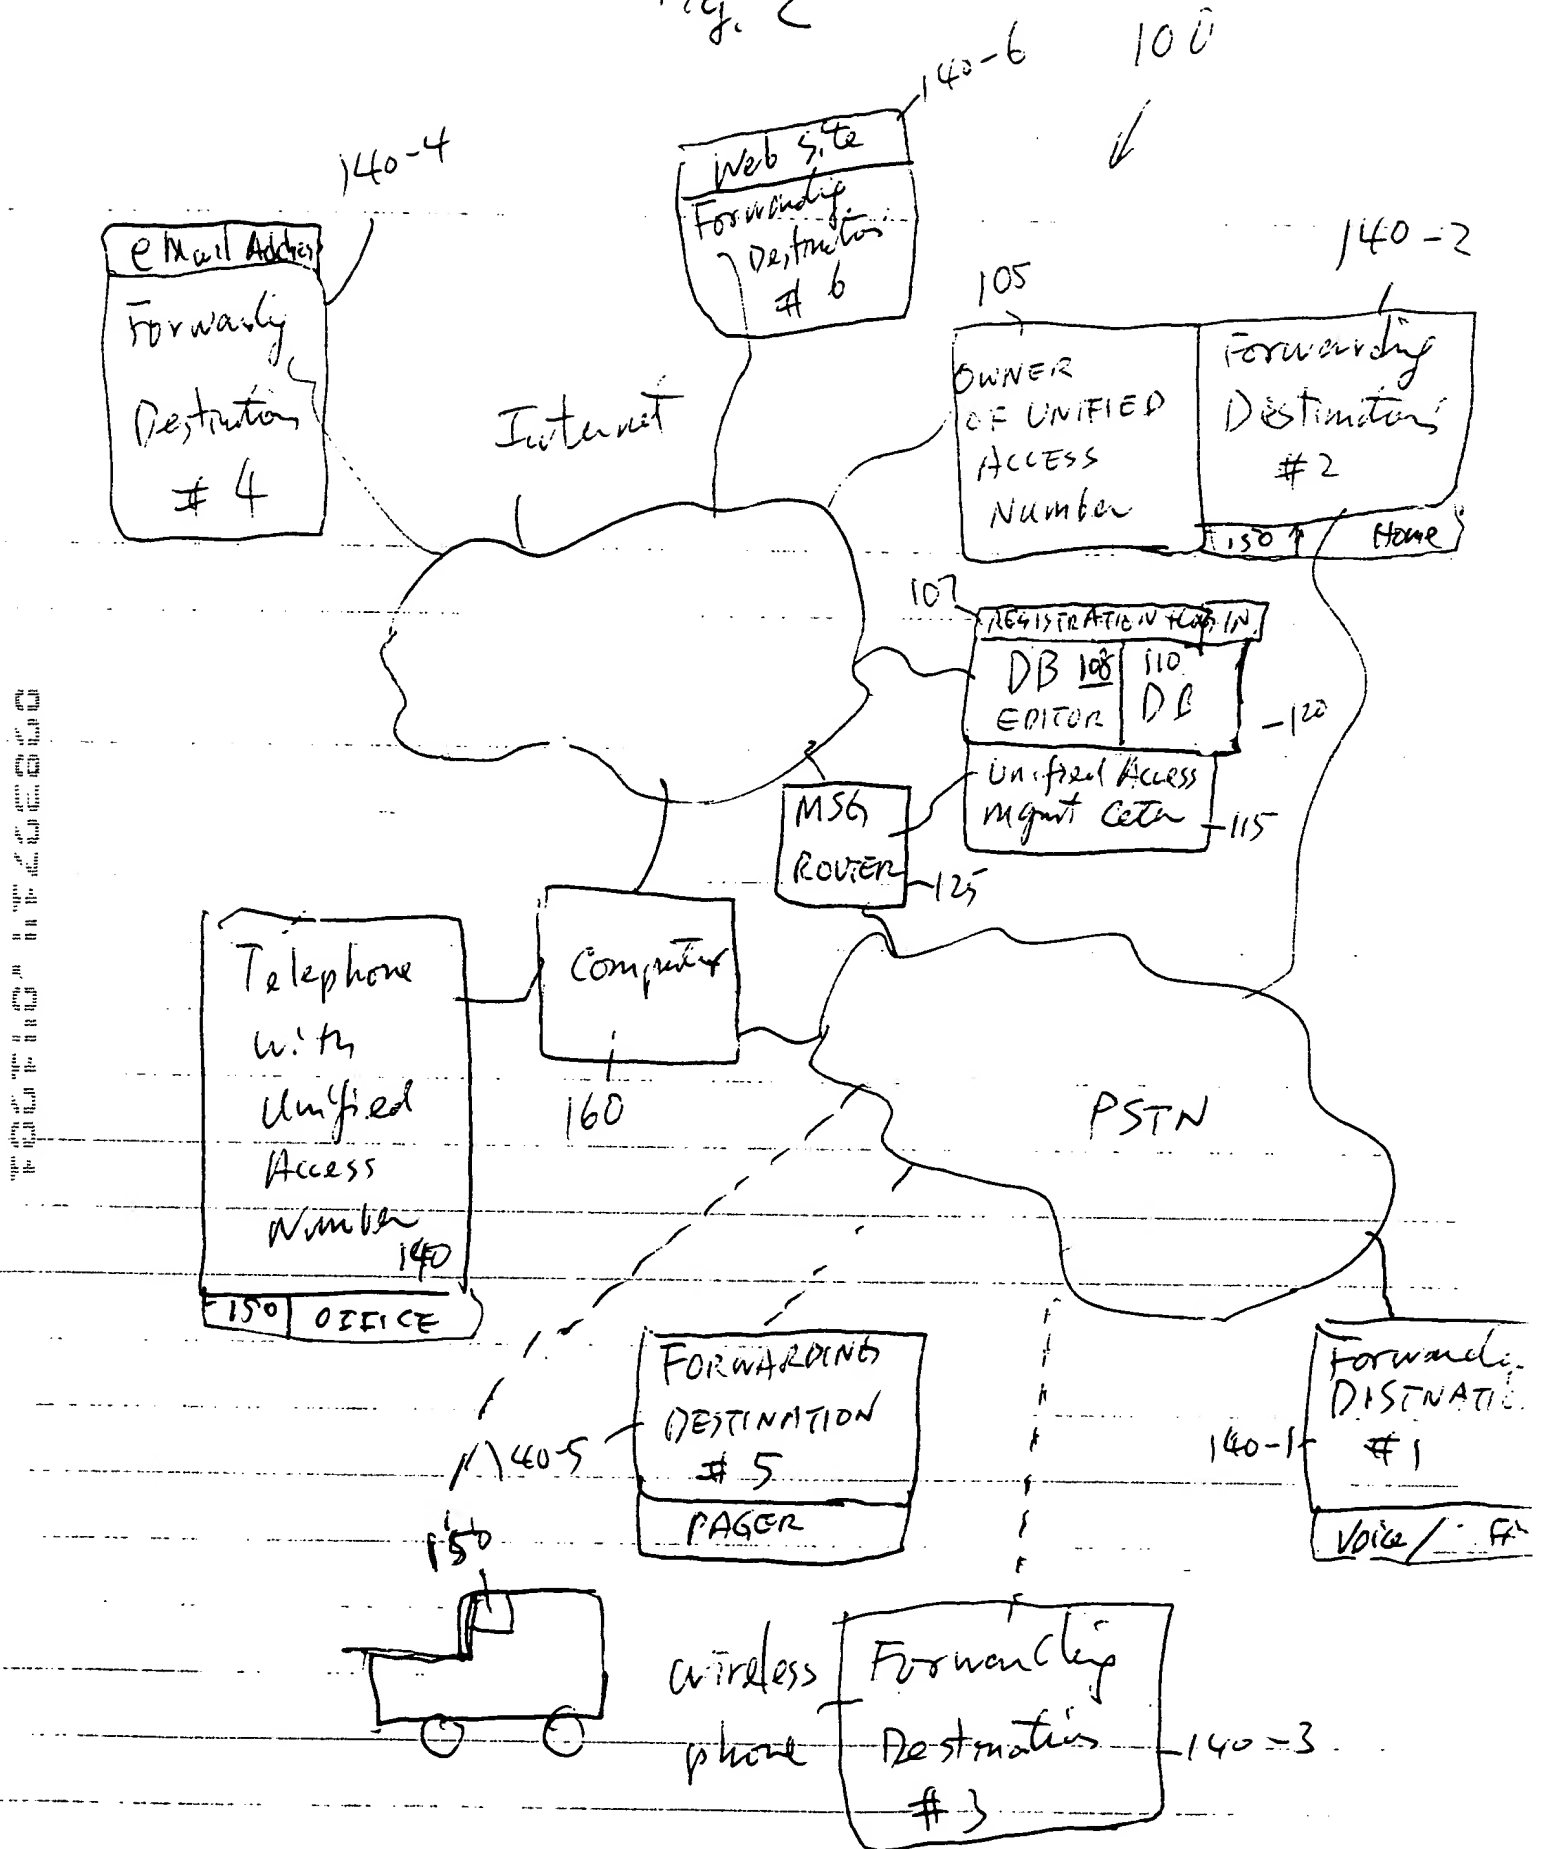 Fig. 2
100
140-6
140-4
Web Site
Forwarding
Destination
# 6
eMail Address
Forwarding
Destination
# 4
Internet
105
140-2
OWNER
OF UNIFIED
ACCESS
Number
Forwarding
Destination
#2
150
Home
107
REGISTRATION + LOG IN
DB 108
EDITOR
110
DB
120
Unified Access
mgmt
115
MSG
ROUTER
125
Telephone
with
Unified
Access
Number
140
150
OFFICE
Computer
160
PSTN
FORWARDING
DESTINATION
# 5
140-5
PAGER
140-1
#1
Voice/
150
wireless
phone
Forwarding
Destination
#3
140-3